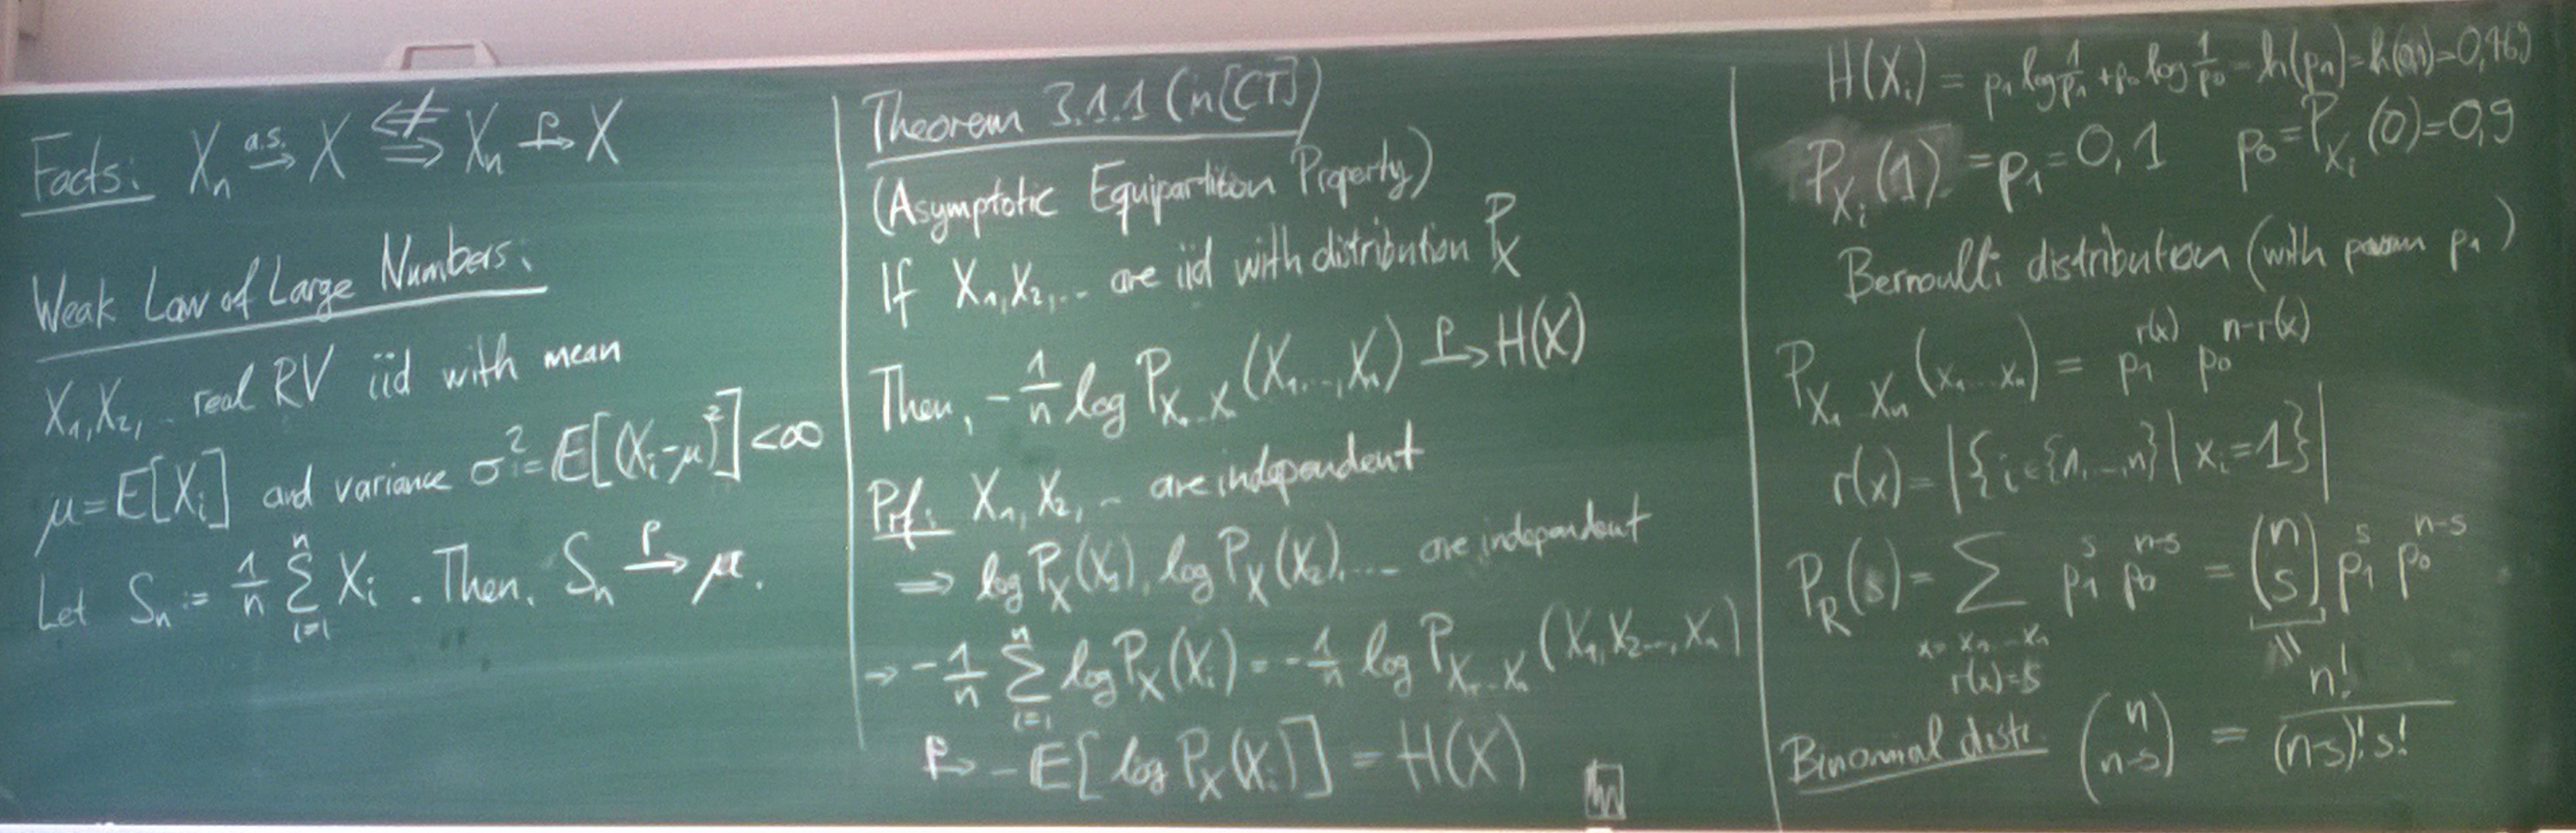 Facts: X_n →^{a.s.} X ⇍ ⇒ X_n →^P X
Weak Law of Large Numbers:
X_1, X_2, ... real RV iid with mean
μ = E[X_i] and variance σ² := E[(X_i-μ)²] < ∞
Let S_n := 1/n Σ_{i=1}^n X_i. Then, S_n →^P μ.
Theorem 3.1.1 (in [CT])
(Asymptotic Equipartition Property)
If X_1, X_2, ... are iid with distribution P_X
Then, -1/n log P_{X_1...X_n}(X_1,...,X_n) →^P H(X)
Prf: X_1, X_2, ... are independent
⇒ log P_X(X_1), log P_X(X_2), ... are independent
→ -1/n Σ_{i=1}^n log P_X(X_i) = -1/n log P_{X_1...X_n}(X_1, X_2..., X_n)
→^P -E[log P_X(X_i)] = H(X)
H(X_i) = p_1 log 1/p_1 + p_0 log 1/p_0 = h(p_1) = h(0,1) = 0,469
P_{X_i}(1) = p_1 = 0,1 p_0 = P_{X_i}(0) = 0,9
Bernoulli distribution (with param p_1)
P_{X_1...X_n}(x_1...x_n) = p_1^{r(x)} p_0^{n-r(x)}
r(x) = |{i ∈ {1,...,n} | x_i = 1}|
P_R(s) = Σ_{x = x_1...x_n, r(x)=s} p_1^s p_0^{n-s} = (n s) p_1^s p_0^{n-s}
Binomial distr. (n n-s) = n!/((n-s)! s!)